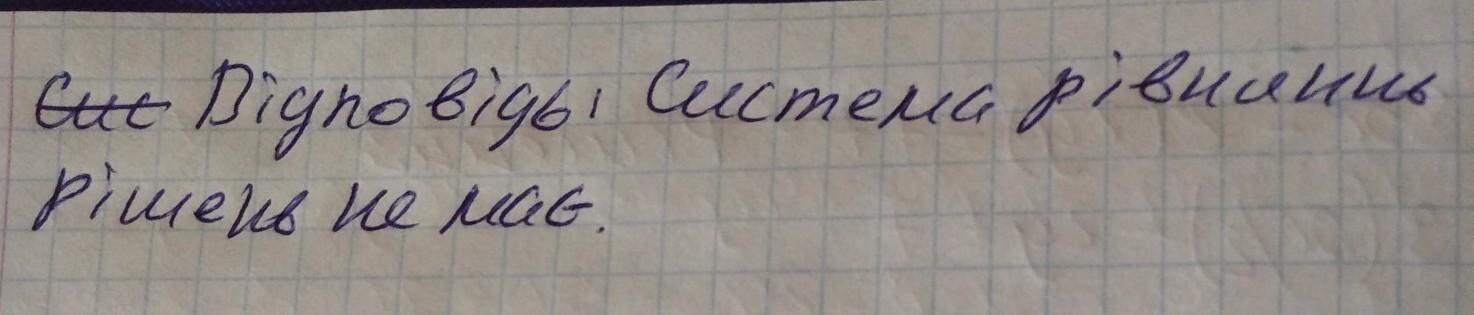 Сис Відповідь: Система рівнянннь
рішень не має.